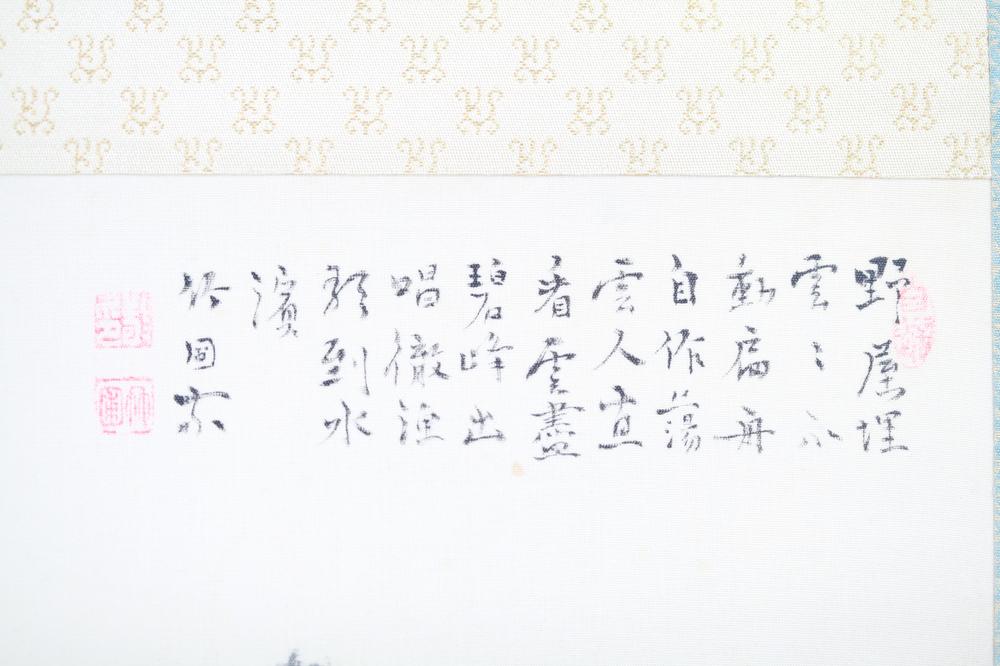 野屋埋
雲々不
動扁舟
自作蕩
雲人直
看雲盡
碧峰出
唱徹漁
歌到水
濱